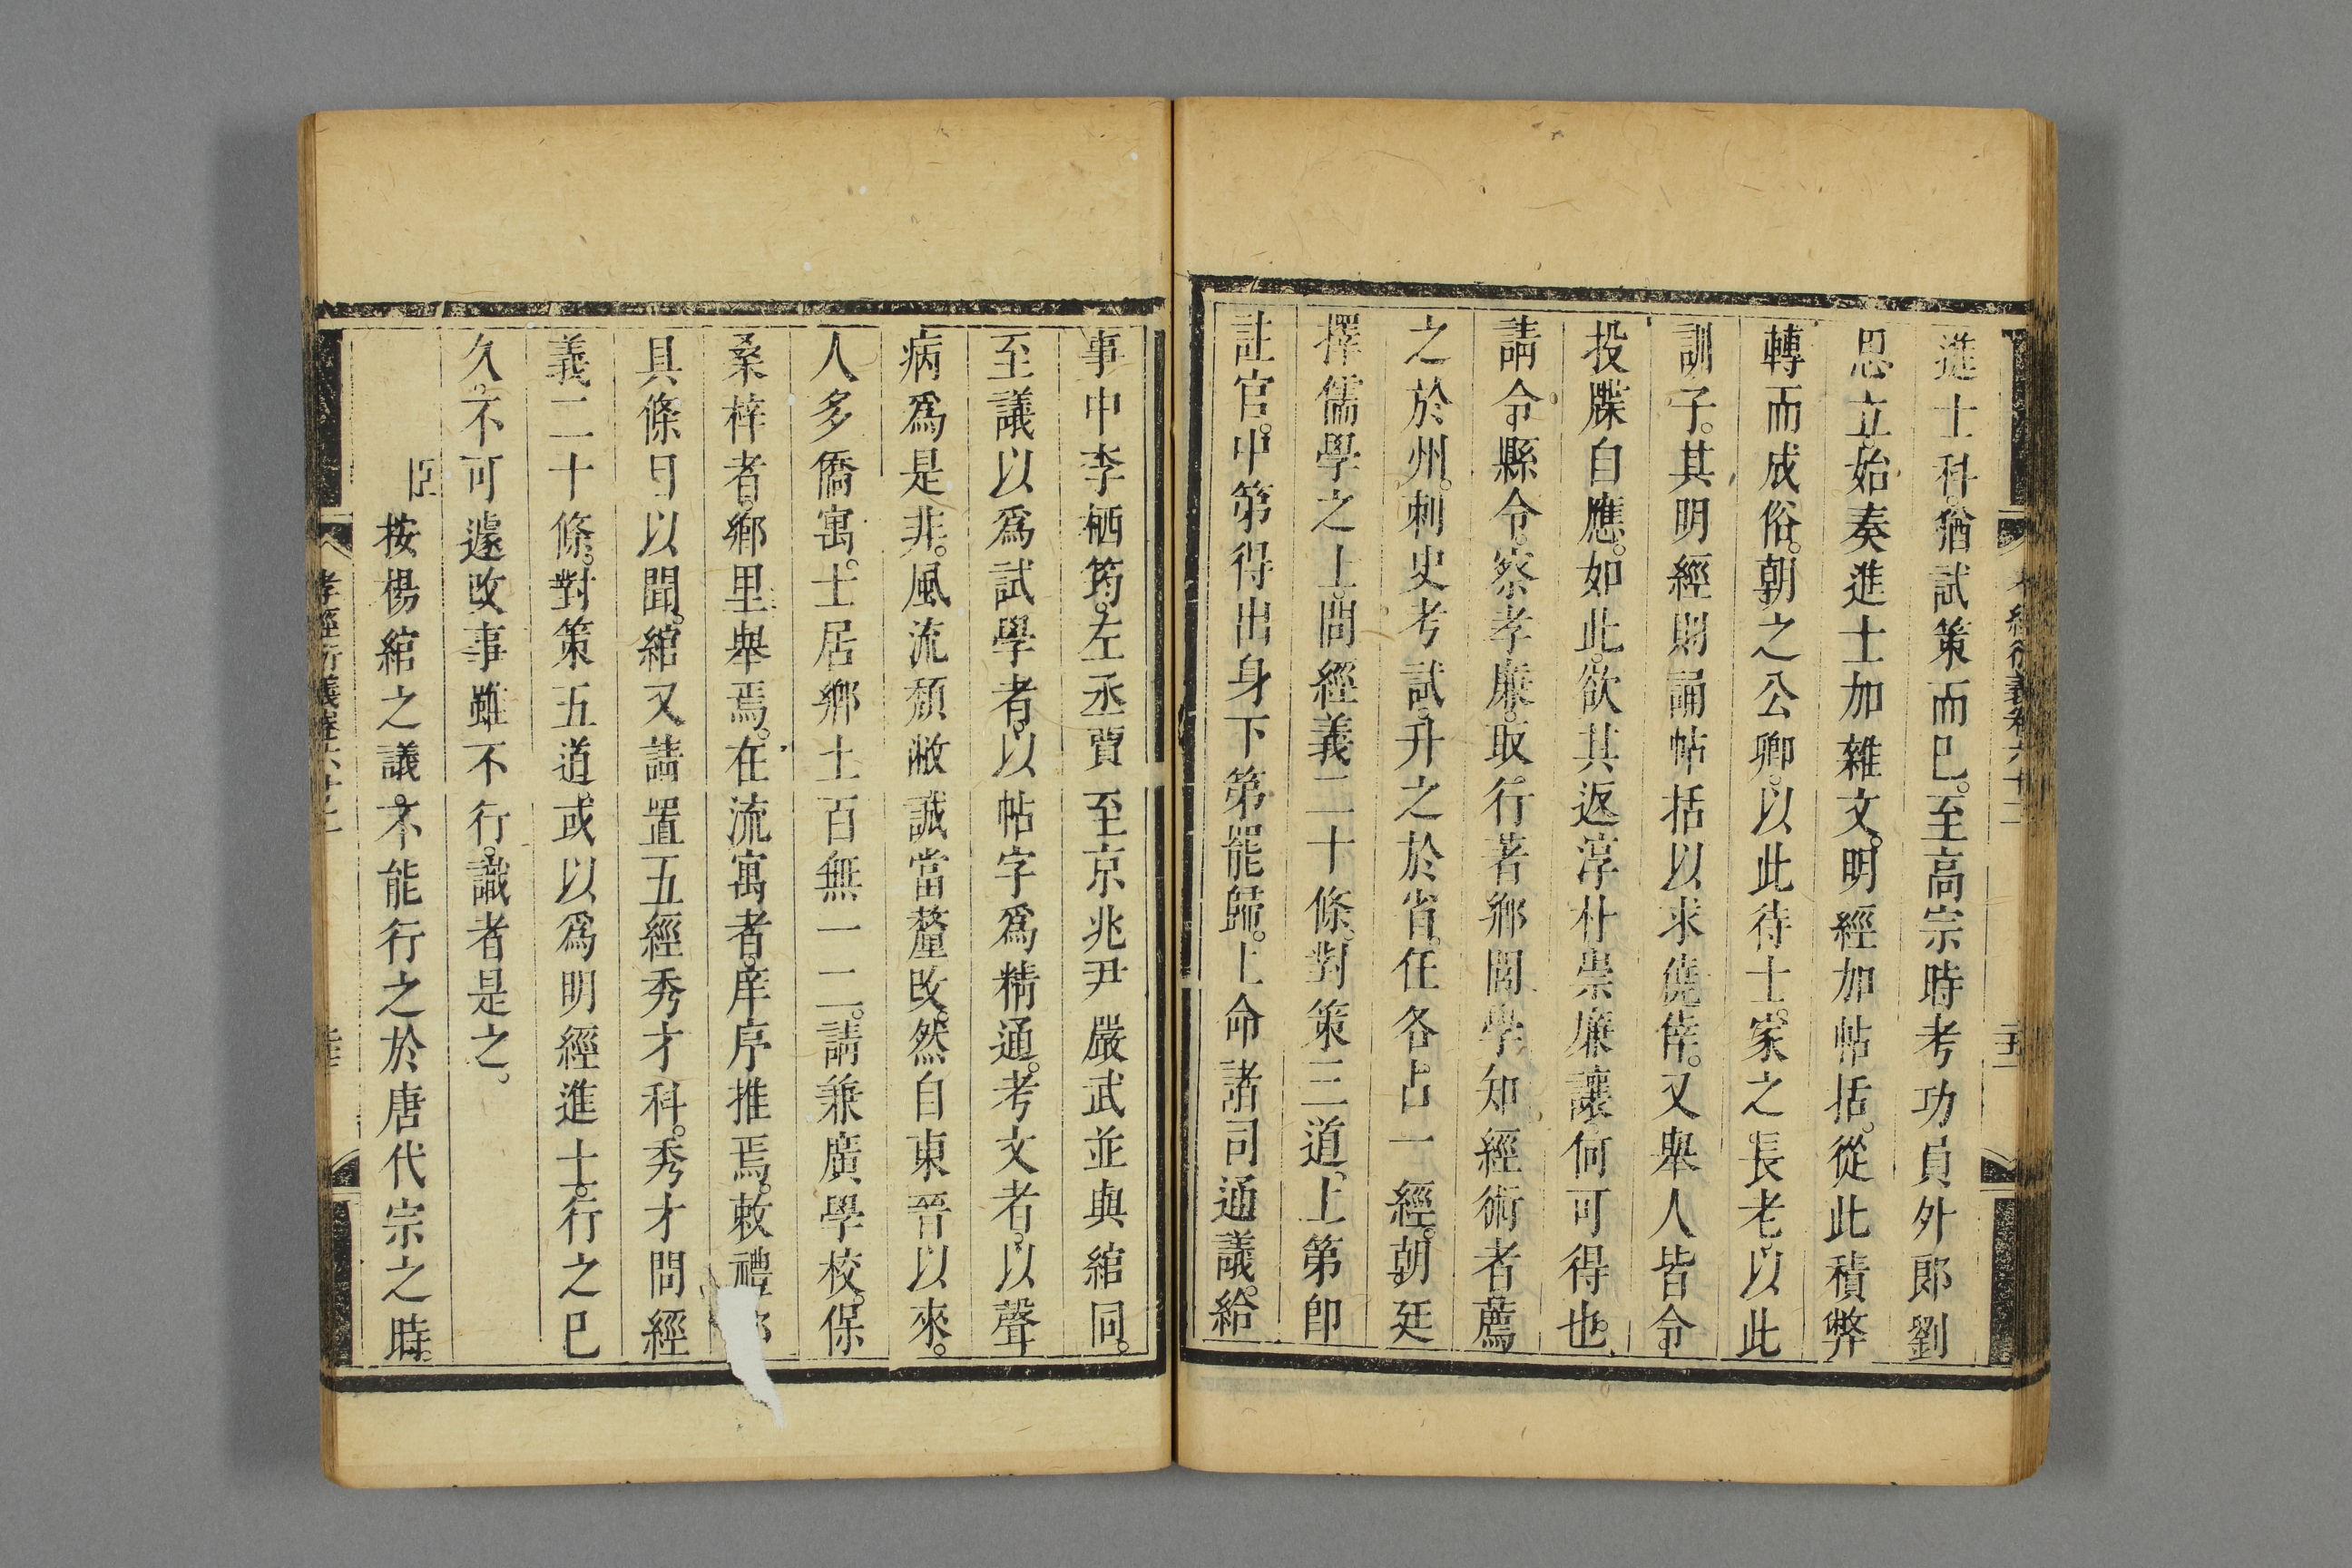 進士科。猶試策而已。至高宗時考功員外郎劉
思立。始奏進士加雜文。明經加帖括。從此積弊
轉而成俗。朝之公卿。以此待士。家之長老。以此
訓子。其明經則誦帖括以求僥倖。又舉人皆令。
投牒自應。如此。欲其返淳朴崇廉讓。何可得也。
請令。縣令。察孝廉。取行著鄉閭學知經術者。薦
之於州。刺史考試。升之於省。任各占一經。朝廷
擇儒學之士。問經義二十條。對策三道。上第卽
註官。中第得出身下第罷歸。上命諸司通議。給
事中李栖筠。左丞賈至京兆尹嚴武並與綰同。
至議以爲試學者。以帖字爲精通。考文者。以聲
病爲是非。風流頹敝誠當釐改。然自東晉以來。
人多僑寓。士居鄉土百無一二。請兼廣學校。保
桑梓者。鄉里舉焉。在流寓者。庠序推焉。敕禮部
具條目以聞。綰又請置五經秀才科。秀才問經
義二十條。對策五道。或以爲明經進士。行之已
久。不可遽改事雖不行。識者是之。
臣按楊綰之議。不能行之於唐代宗之時。
孝經衍義卷六十二